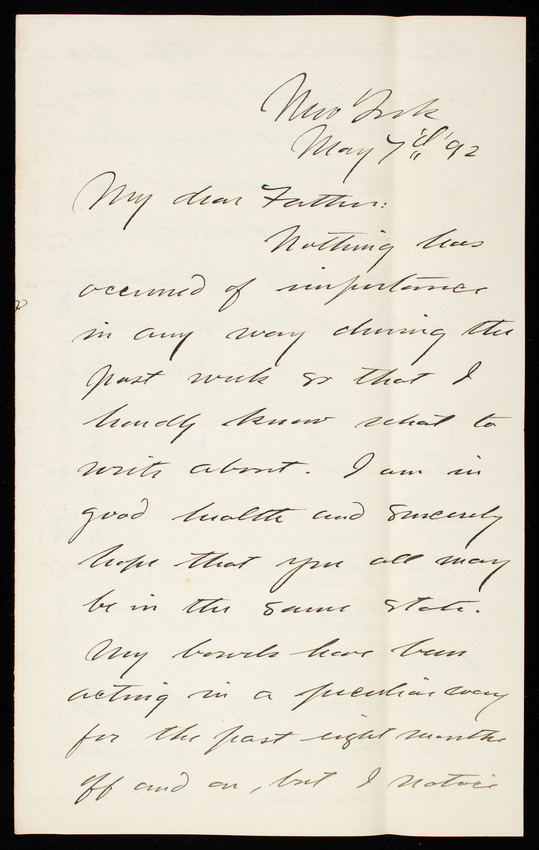 New York
May 7"d" '92
My dear Father:
Nothing has
occurred of importance
in any way during the
past week so that I
hardly know what to
write about. I am in
good health and sincerely
hope that you all may
be in the same state.
My bowels have been
acting in a peculiar way
for the past eight months
off and on, but I notice